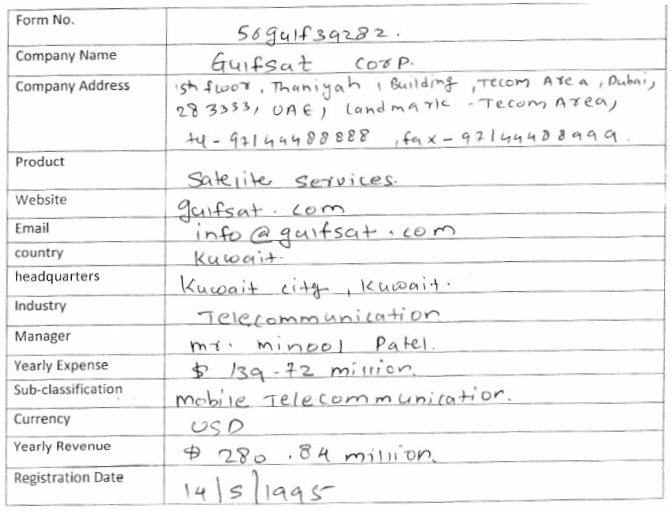 Form No. 56gulf39282.
Company Name Gulfsat Corp.
Company Address 5th floor, Thaniyah, Building, Tecom Area, Dubai,
283333, UAE, Landmark - Tecom Area,
tel - 97144488888, fax - 97144488999.
Product Satelite Services.
Website gulfsat.com
Email info@gulfsat.com
country Kuwait.
headquarters Kuwait city, Kuwait.
Industry Telecommunication
Manager mr. minool Patel.
Yearly Expense $ 139.72 million.
Sub-classification mobile Telecommunication.
Currency USD
Yearly Revenue $ 280.84 million.
Registration Date 14/5/1995